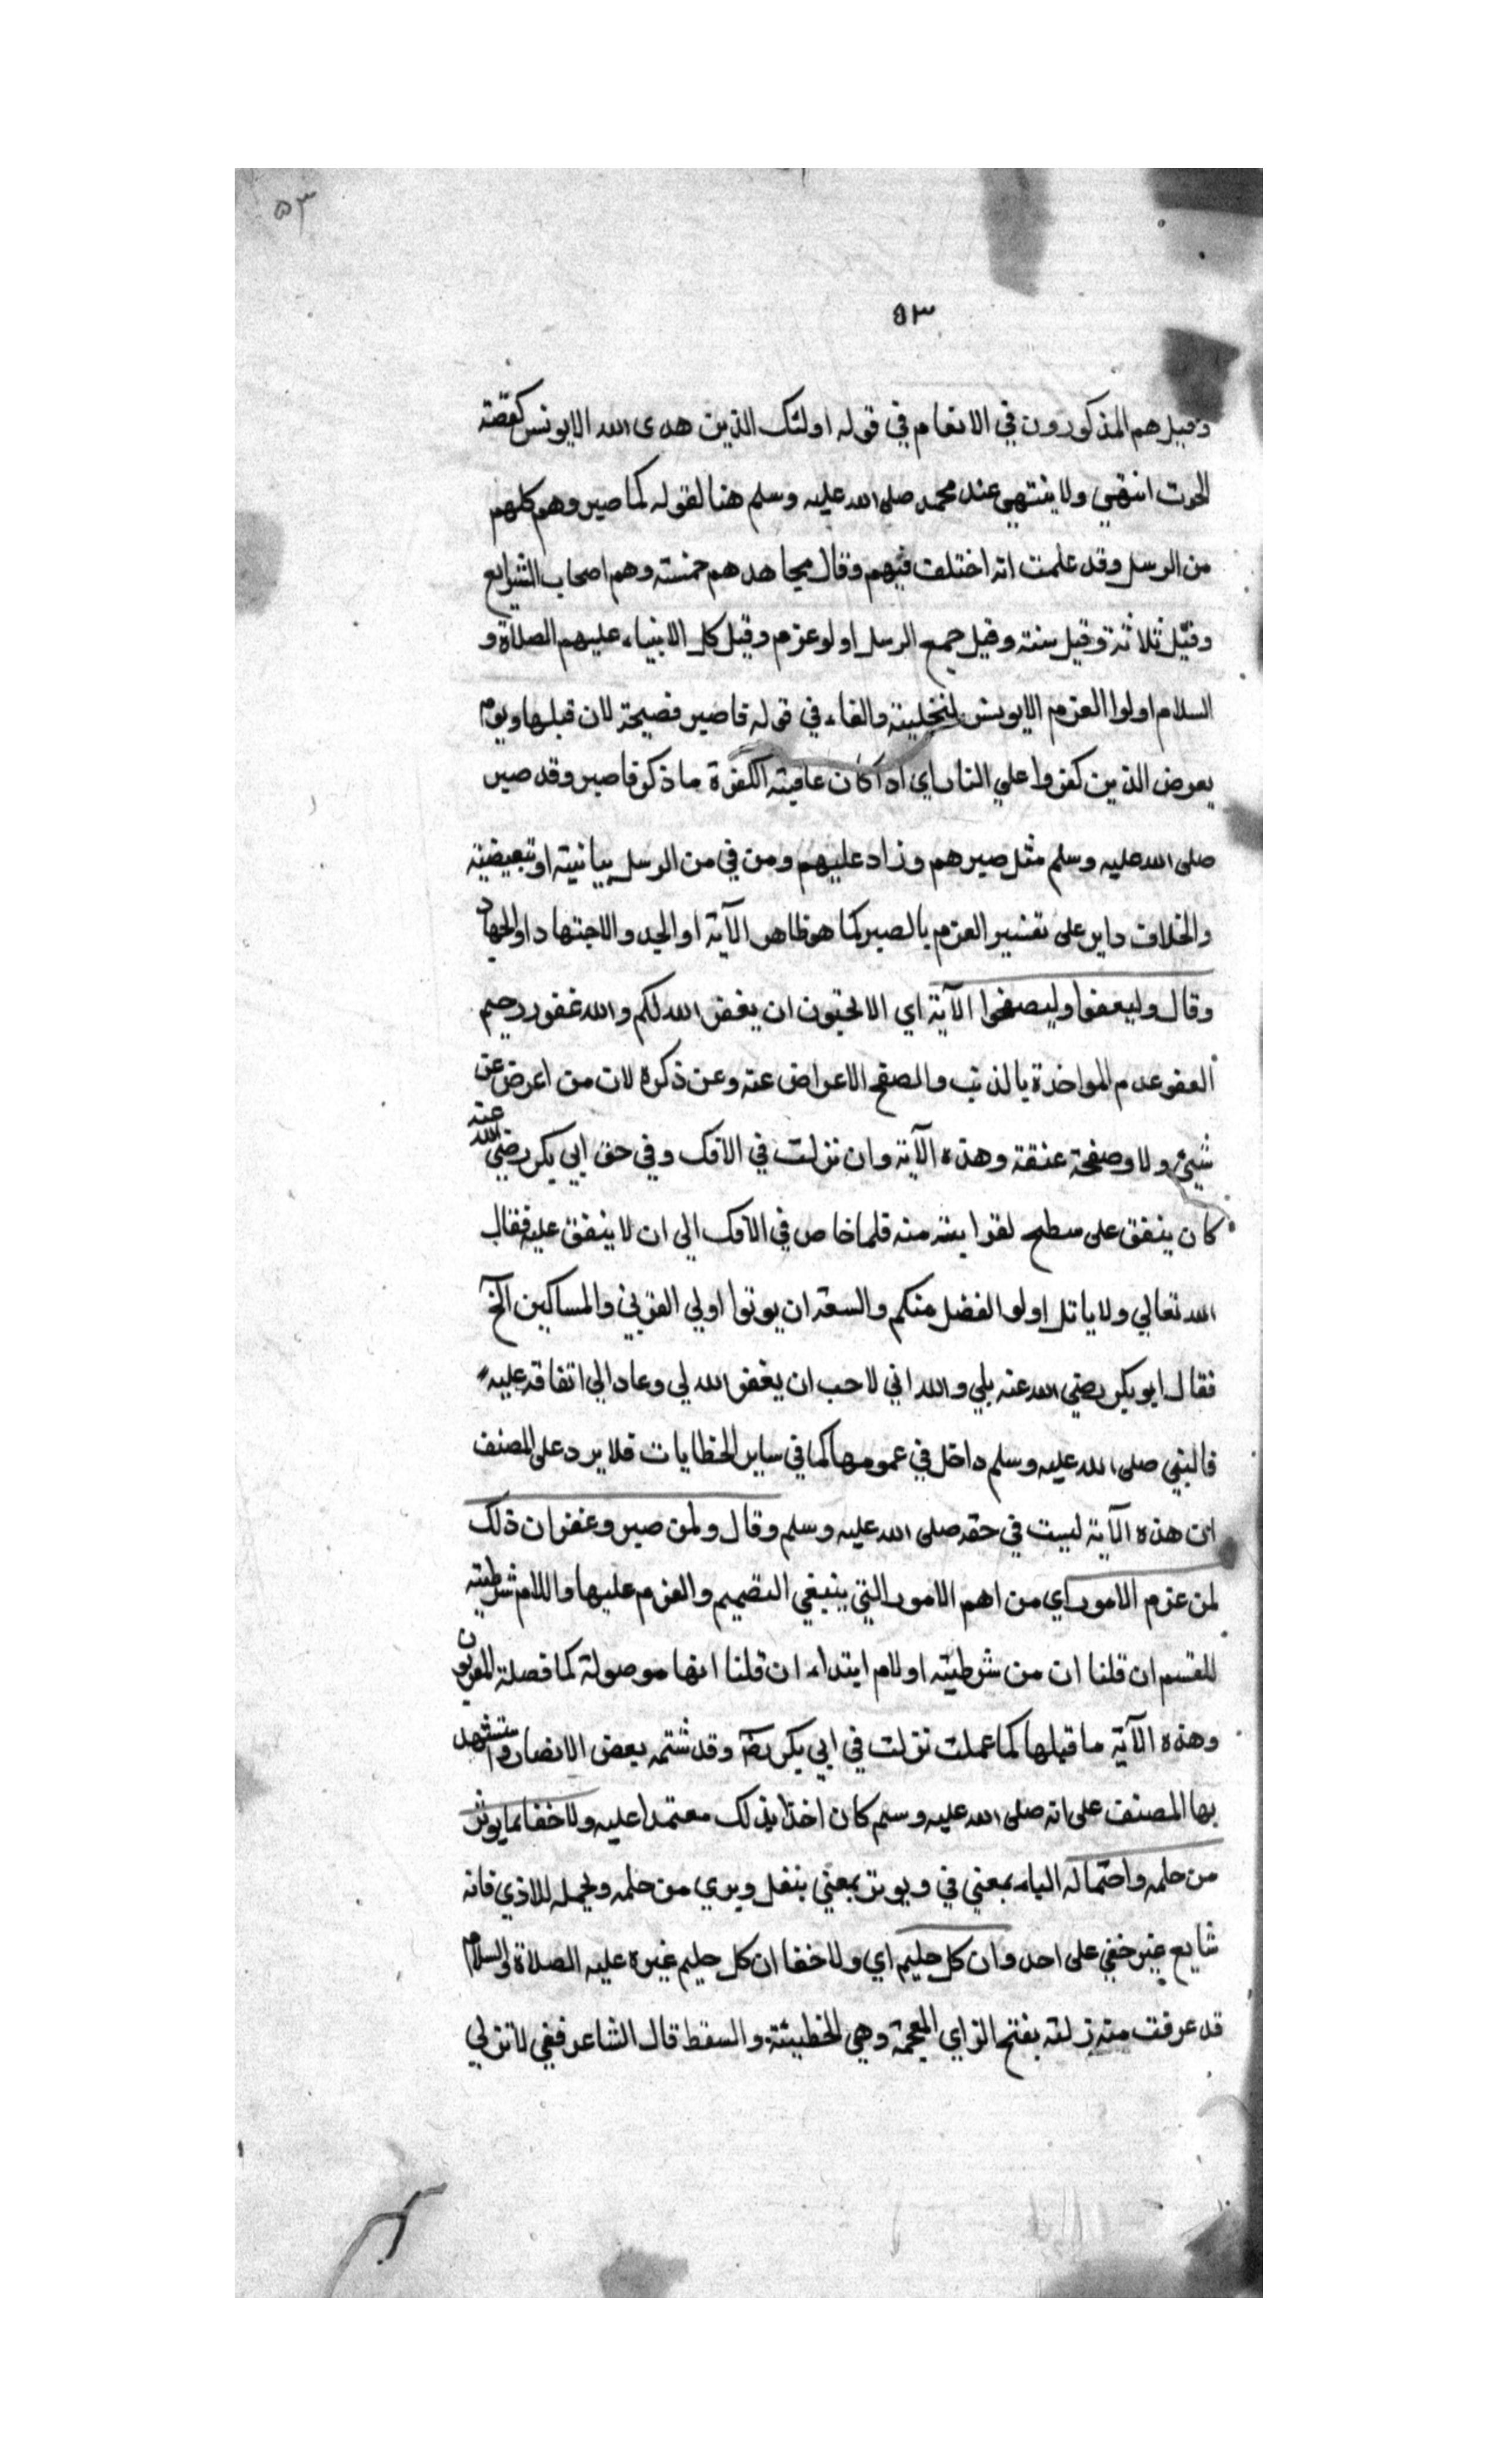 ٥٣
٥٣
وقيل هم المذكورون في الانعام في قوله اولئك الذين هدى الله الا يونس كقصة
الحوت انتهي ولا ينتهي عند محمد صلى الله عليه وسلم هنا لقوله كما صبر وهم كلهم
من الرسل وقد علمت انه اختلف فيهم وقال مجاهد هم خمسة وهم اصحاب الشرايع
وقيل ثلاثة وقيل ستة وقيل جميع الرسل اولو عزم وقيل كل الانبياء عليهم الصلاة و
السلام اولوا العزم الا يونس والفاء في قوله فاصبر فصيحة لان قبلها ويوم
يعرض الذين كفروا علي النار اي اذا كان عاقبة الكفرة ما ذكر فاصبر وقد صبر
صلى الله عليه وسلم مثل صبرهم وزاد عليهم ومن في من الرسل بيانية او تبعيضية
والخلاف داير على تفسير العزم بالصبر كما هو ظاهر الآية او الجد والاجتهاد او الجهاد
وقال وليعفوا وليصفحوا الآية اي الا تحبون ان يغفر الله لكم والله غفور رحيم
العفو عدم المواخذة بالذنب والصفح الاعراض عنه وعن ذكره لان من اعرض عن
شيئ ولاه صفحة عنقه وهذه الآية وان نزلت في الافك وفي حق ابي بكر رضي الله عنه
كان ينفق على مسطح لقرابته منه فلما خاض في الافك الى ان لا ينفق عليه فقال
الله تعالي ولا ياتل اولوا الفضل منكم والسعة ان يوتوا اولي القربي والمساكين الخ
فقال ابو بكر رضي الله عنه بلي والله اني لاحب ان يغفر الله لي وعاد الي انفاقه عليه
فالنبي صلى الله عليه وسلم داخل في عمومها كما في ساير الخطابات فلا يرد على المصنف
ان هذه الآية ليست في حقه صلى الله عليه وسلم وقال ولمن صبر وغفر ان ذلك
لمن عزم الامور اي من اهم الامور التي ينبغي التصميم والعزم عليها واللام شرطية
للقسم ان قلنا ان من شرطية او لام ابتداء ان قلنا انها موصولة كما فصله المعربون
وهذه الآية ما قبلها كما عملت نزلت في ابي بكر رضه وقد شتمه بعض الانصار واستشهد
بها المصنف على انه صلى الله عليه وسلم كان اخذا بذلك معتمدا عليه ولا خفا بما يوثر
من حلمه واحتماله الباء بمعني في ويوثر بمعني ينقل ويروي من حلمه وتحمله للاذي فانه
شايع غير خفي على احد وان كل حليم اي ولا خفا ان كل حليم غيره عليه الصلاة والسلام
قد عرفت منه زلة بفتح الزاي المعجمة وهي الخطيئة والسقط قال الشاعر ففي لا تزلي